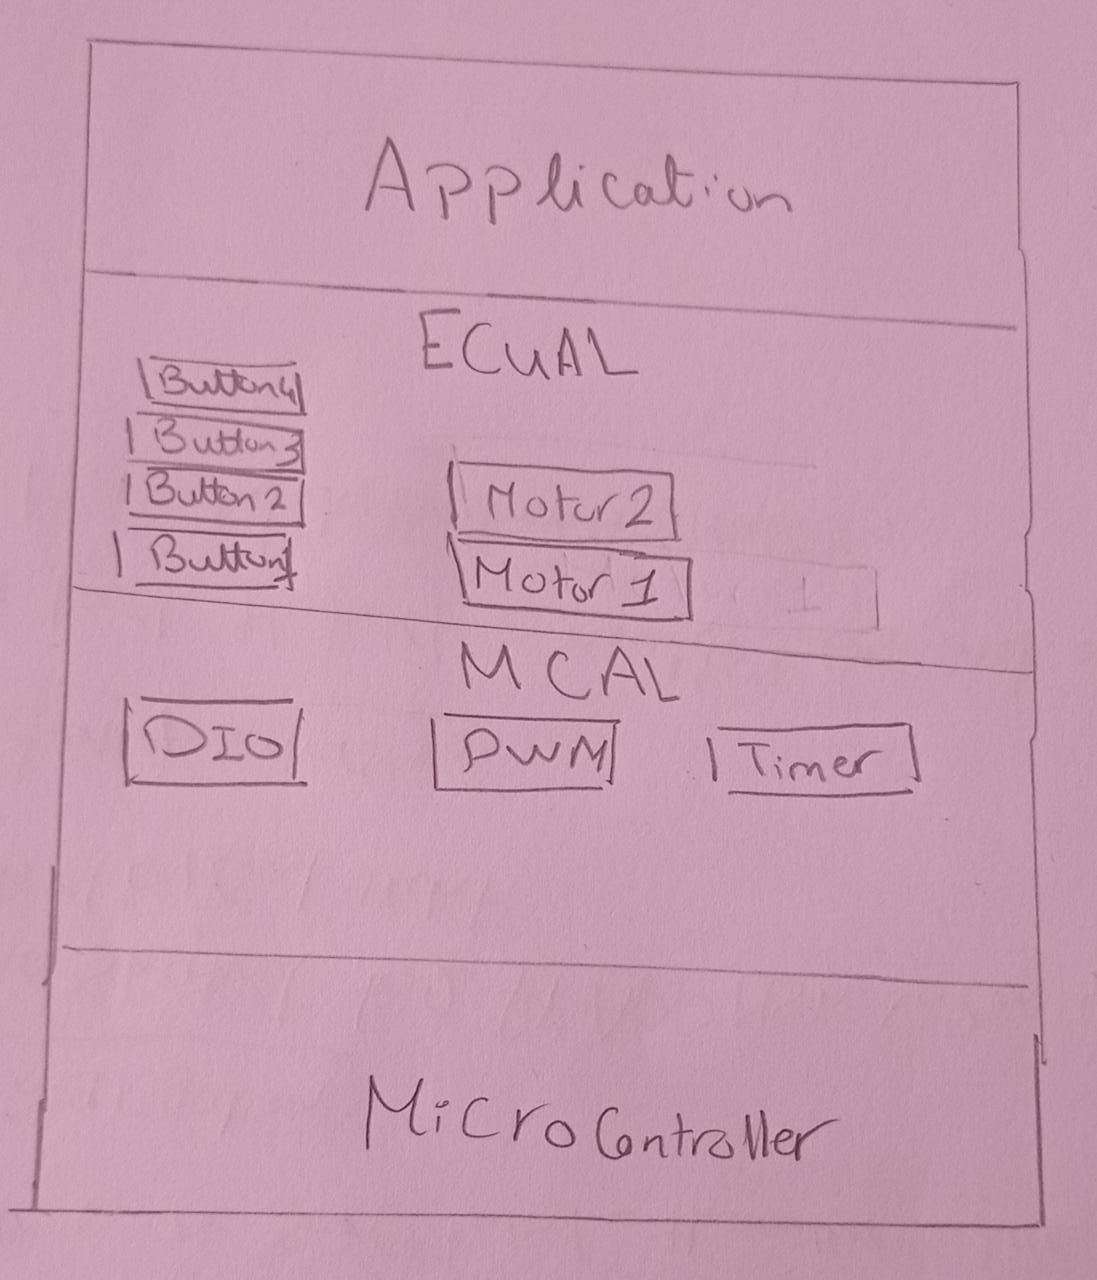 Application
ECUAL
Button4
Button3
Button 2
Button1
Motor 2
Motor 1
1
MCAL
DIO
PWM
Timer
Micro Controller